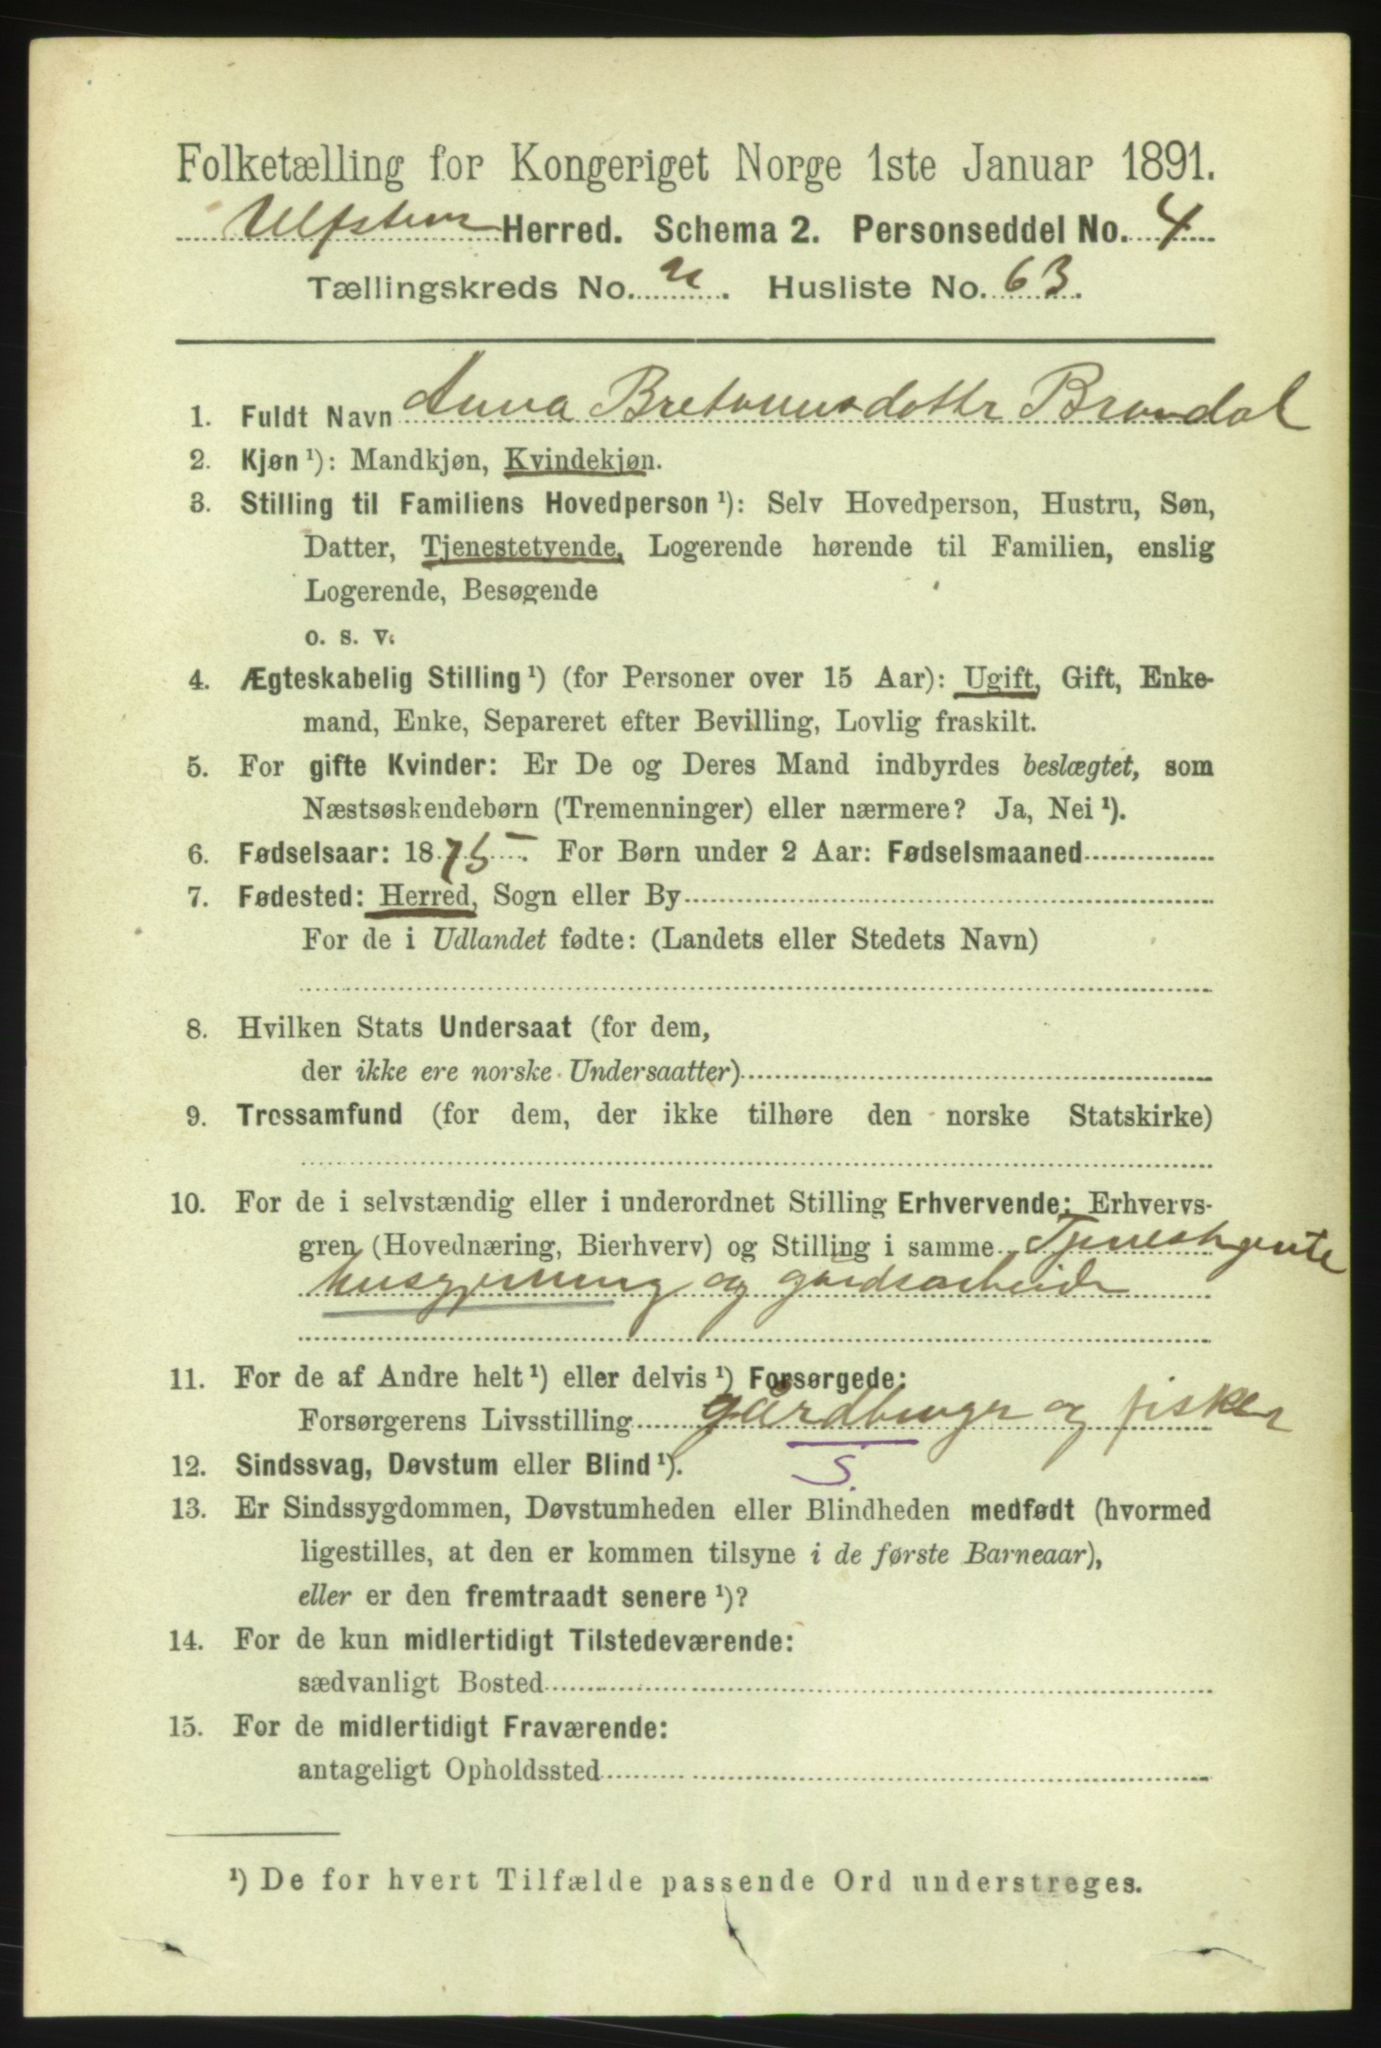 Folketælling for Kongeriget Norge 1ste Januar 1891.
Ulfsten Herred. Schema 2. Personseddel No. 4
Tællingskreds No. 2. Husliste No. 63.
1. Fuldt Navn Anna Bretvinsdotter Brandal
2. Kjøn ¹): Mandkjøn, Kvindekjøn.
3. Stilling til Familiens Hovedperson ¹): Selv Hovedperson, Hustru, Søn,
Datter, Tjenestetyende, Logerende hørende til Familien, enslig
Logerende, Besøgende
o. s. v.
4. Ægteskabelig Stilling ¹) (for Personer over 15 Aar): Ugift, Gift, Enke-
mand, Enke, Separeret efter Bevilling, Lovlig fraskilt.
5. For gifte Kvinder: Er De og Deres Mand indbyrdes beslægtet, som
Næstsøskendebørn (Tremenninger) eller nærmere? Ja, Nei ¹).
6. Fødselsaar: 1875. For Børn under 2 Aar: Fødselsmaaned
7. Fødested: Herred, Sogn eller By
For de i Udlandet fødte: (Landets eller Stedets Navn)
8. Hvilken Stats Undersaat (for dem,
der ikke ere norske Undersaatter)
9. Trossamfund (for dem, der ikke tilhøre den norske Statskirke)
10. For de i selvstændig eller i underordnet Stilling Erhvervende: Erhvervs-
gren (Hovednæring, Bierhverv) og Stilling i samme Tjenestgente
husgjerning og gårdsarbeide
11. For de af Andre helt ¹) eller delvis ¹) Forsørgede:
Forsørgerens Livsstilling gårdbruger og fisker
12. Sindssvag, Døvstum eller Blind ¹). S.
13. Er Sindssygdommen, Døvstumheden eller Blindheden medfødt (hvormed
ligestilles, at den er kommen tilsyne i de første Barneaar),
eller er den fremtraadt senere ¹)?
14. For de kun midlertidigt Tilstedeværende:
sædvanligt Bosted
15. For de midlertidigt Fraværende:
antageligt Opholdssted
¹) De for hvert Tilfælde passende Ord understreges.